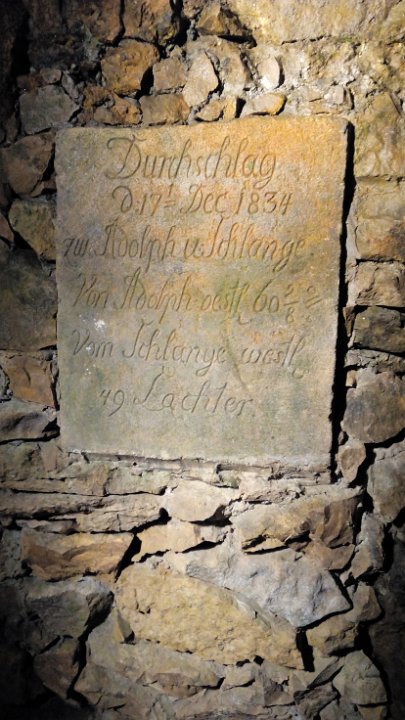 Durchschlag
d. 17t Dec 1834
zw. Adolph u. Schlange.
Von Adolph oestl. 60 2/8
Vom Schlange westl.
49 Lachter.